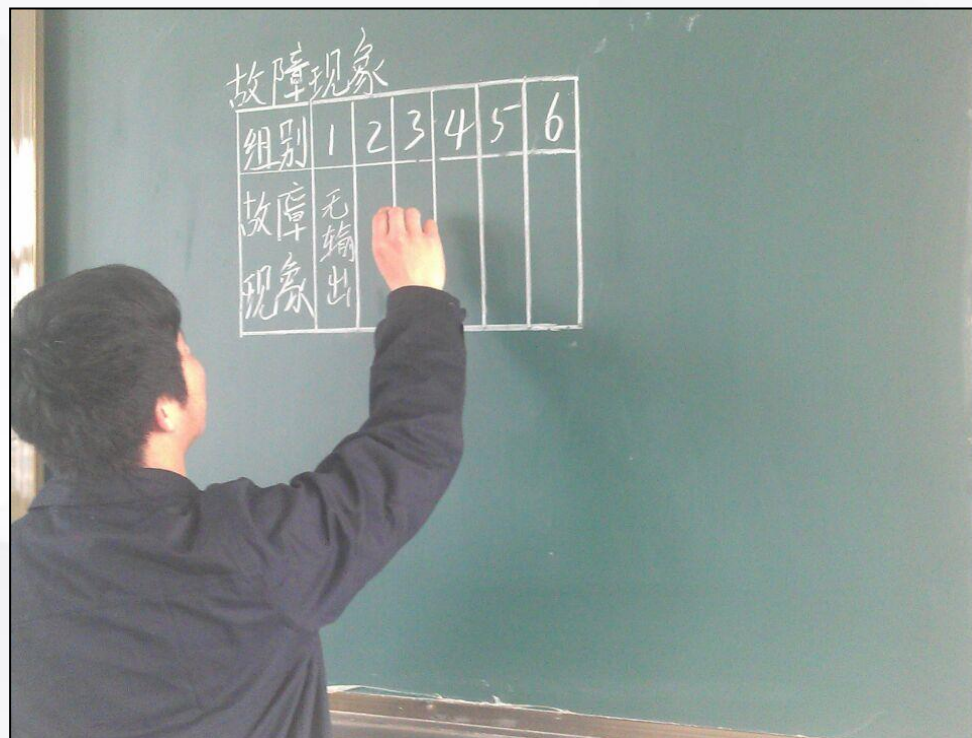 故障现象
组别 1 2 3 4 5 6
故障现象 无输出